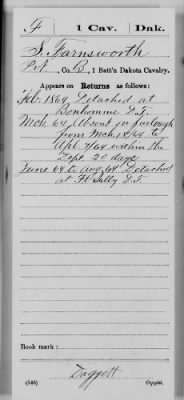 F | 1 Cav. | Dak.
S. Farnsworth
Pvt., Co. B, 1 Batt'n Dakota Cavalry.
Appears on Returns as follows:
Feb. 1864, Detached at
Bonhomme D.T.
Mch. 64 Absent on furlough
from Mch. 18/64 to
Apl. 7/64 within the
Dept. 20 days
June 64 to Aug 64 Detached
at Ft Sully D.T.
Book mark:
Daggett
Copyist.